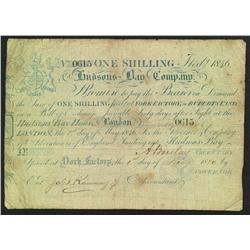 0615 ONE SHILLING
Hudsons Bay Company.
Promise to pay the Bearer on Demand
the Sum of ONE SHILLING YORK FACTORY in RUPERTS LAND
in a Bill of Exchange payable Sixty days after Sight at the
Hudsons Bay House London 0615
LONDON, the day of May the Governor & Company
of Adventurers of England trading into Hudsons Bay
A Barclay SECRETARY
Issued at York Factory, the day of
GOVERNOR
Ent. Accountant